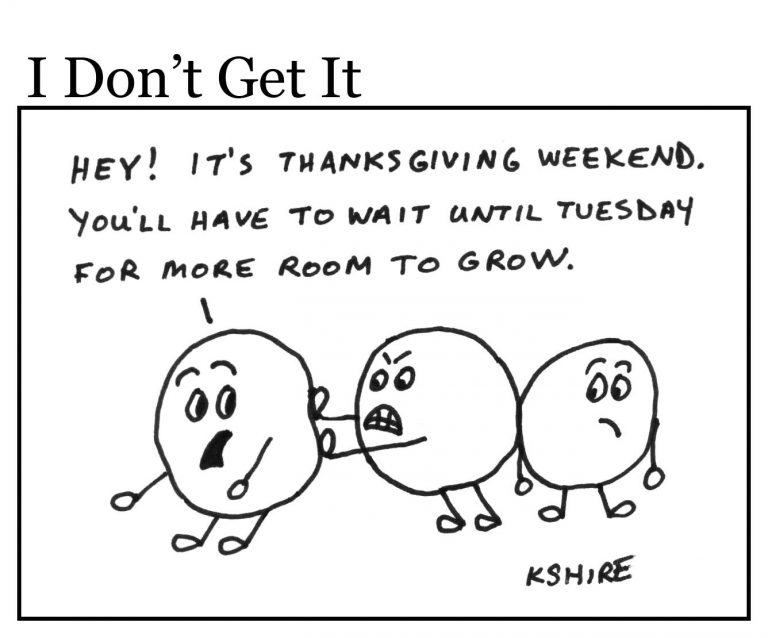 I Don't Get It
HEY! IT'S THANKSGIVING WEEKEND.
YOU'LL HAVE TO WAIT UNTIL TUESDAY
FOR MORE ROOM TO GROW.
KSHIRE